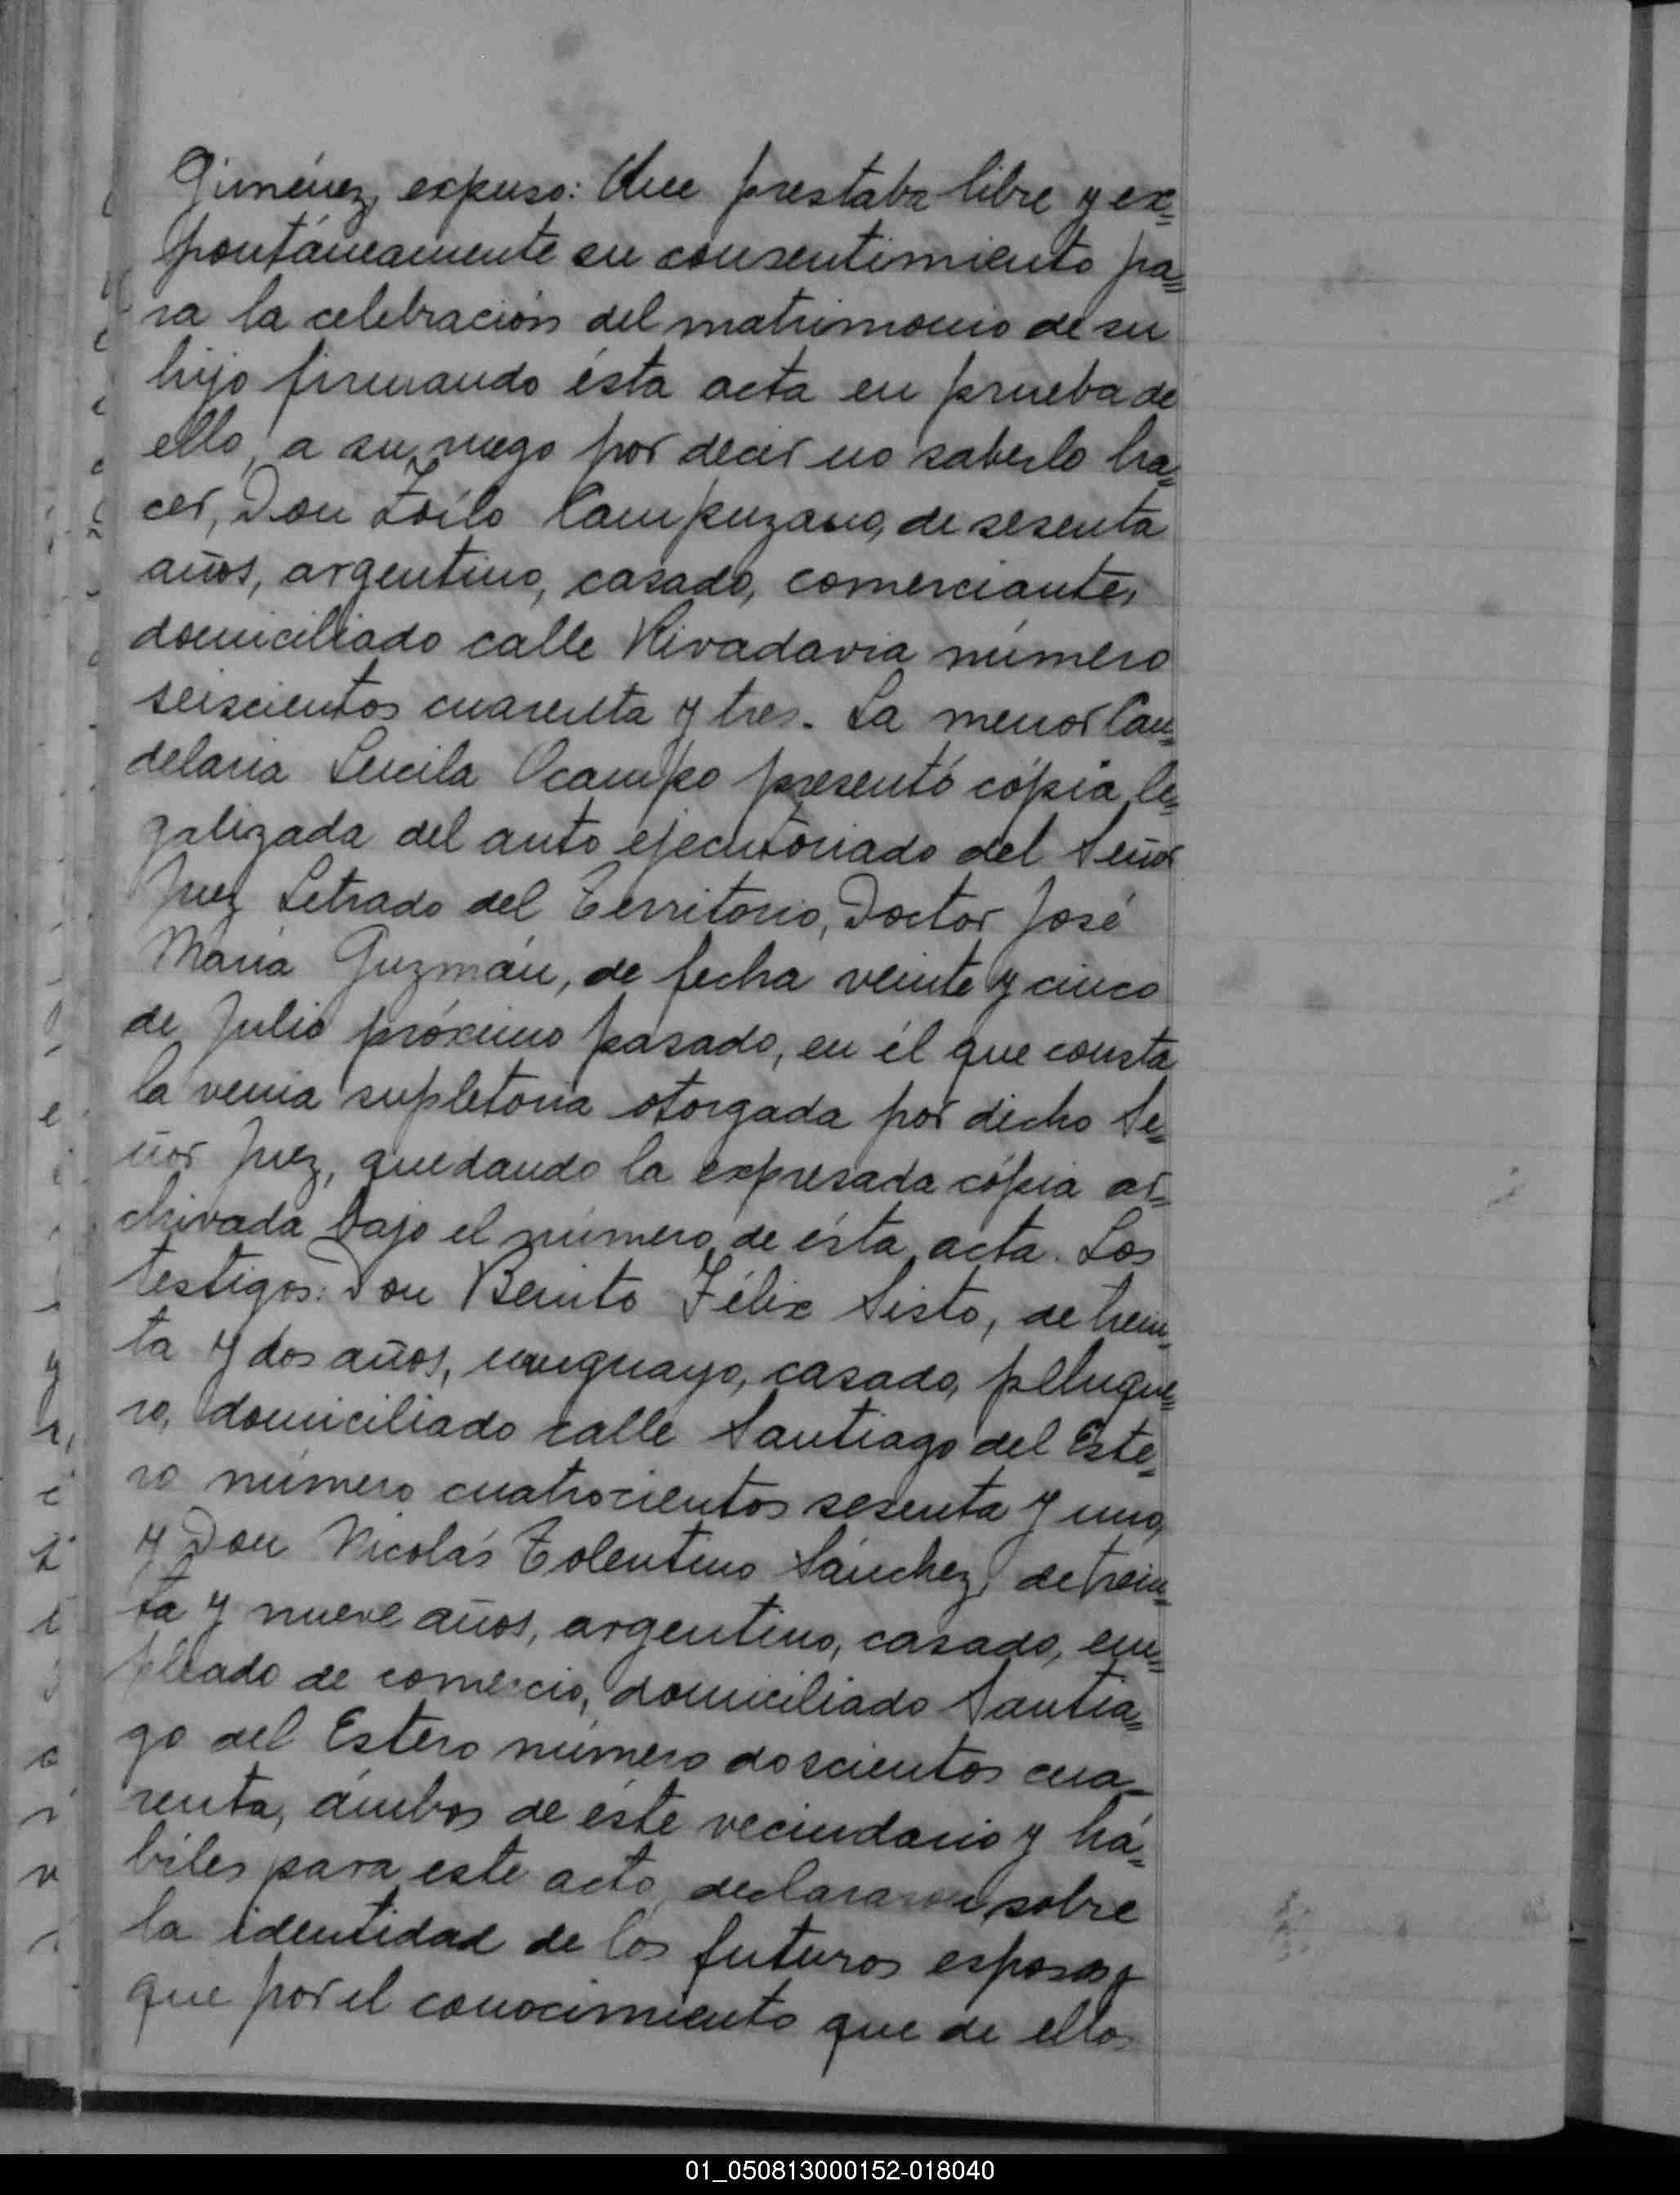 Giménez, expuso: Que prestaba libre y ex=
pontáneamente su consentimiento pa=
ra la celebración del matrimonio de su
hijo firmando ésta acta en prueba de
ello, a su ruego por decir no saberlo ha=
cer, Don Zoilo Campuzano, de sesenta
años, argentino, casado, comerciante,
domiciliado calle Rivadavia número
seiscientos cuarenta y tres. La menor Can=
delaria Lucila Ocampo presentó cópia le=
galizada del auto ejecutoriado del Señor
Juez Letrado del Territorio, Doctor José
María Guzmán, de fecha veinte y cinco
de Julio próximo pasado, en él que consta
la venia supletoria otorgada por dicho Se=
ñor Juez, quedando la expresada cópia ar=
chivada bajo el número de ésta acta. Los
testigos: Don Benito Félix Sisto, de trein=
ta y dos años, uruguayo, casado, peluque=
ro, domiciliado calle Santiago del Este=
ro número cuatrocientos sesenta y uno,
y Don Nicolás Tolentino Sánchez, de trein=
ta y nueve años, argentino, casado, em=
pleado de comercio, domiciliado Santia=
go del Estero número doscientos cua=
renta, ámbos de éste vecindario y há=
biles para este acto, declararon sobre
la identidad de los futuros esposos y
que por el conocimiento que de ellos
01_050813000152-018040